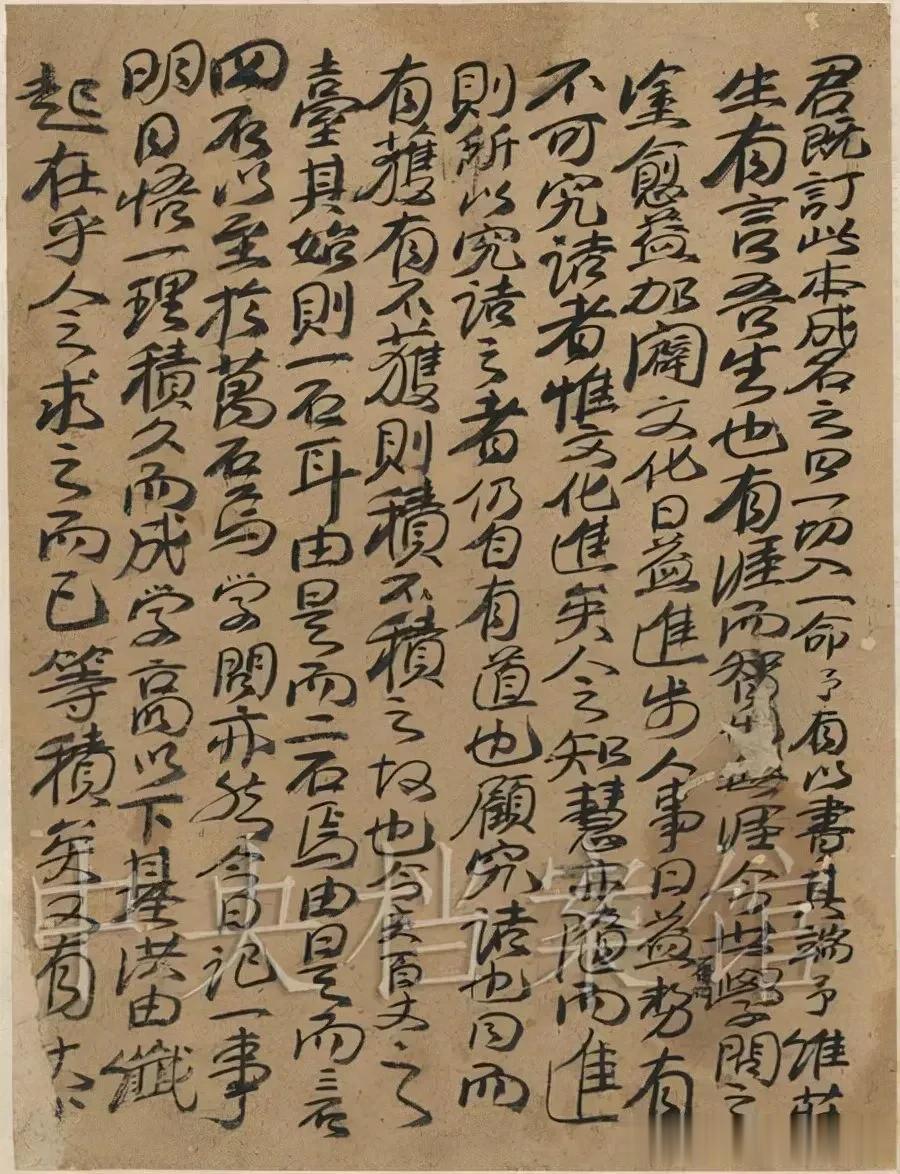 君既訂此本成名之曰一切入一命予有以書其端予維莊
生有言吾生也有涯而智也無涯今世學問之
塗愈益加闢文化日益進步人事日益蕃衍勢有
不可究詰者惟文化進矣人之知慧亦隨而進
則所以究詰之者仍自有道也顧究詰也同而
有獲有不獲則積不積之故也今夫百丈之
臺其始則一石耳由是而二石焉由是而三石
四石以至於萬石焉学問亦然今日記一事
明日悟一理積久而成学高以下基洪由纖
起在乎人之求之而已等積矣又有大小
中央档案馆